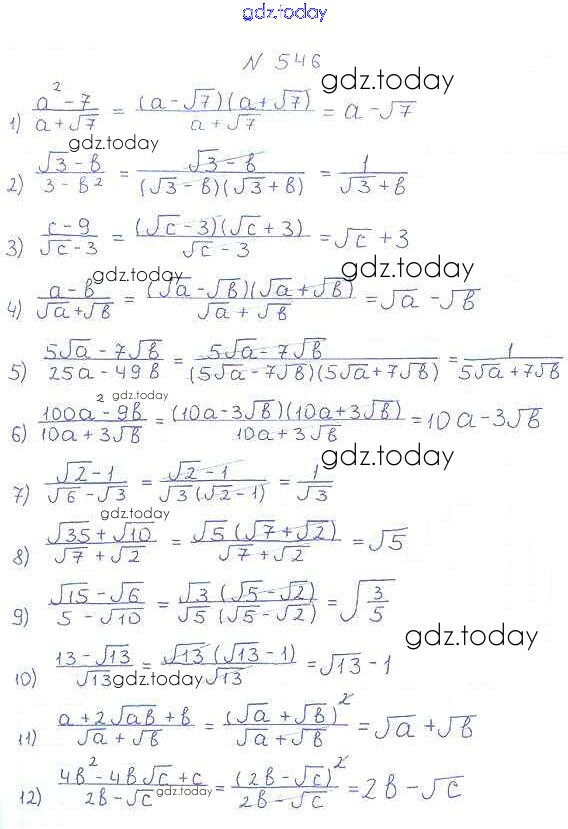 gdz.today
N 546
gdz.today
1) (a² - 7)/(a + √7) = ((a - √7)(a + √7))/(a + √7) = a - √7
gdz.today
2) (√3 - в)/(3 - в²) = (√3 - в)/((√3 - в)(√3 + в)) = 1/(√3 + в)
3) (c - 9)/(√c - 3) = ((√c - 3)(√c + 3))/(√c - 3) = √c + 3
gdz.today gdz.today
4) (a - в)/(√a + √в) = ((√a - √в)(√a + √в))/(√a + √в) = √a - √в
5) (5√a - 7√в)/(25a - 49в) = (5√a - 7√в)/((5√a - 7√в)(5√a + 7√в)) = 1/(5√a + 7√в)
gdz.today
6) (100a² - 9в)/(10a + 3√в) = ((10a - 3√в)(10a + 3√в))/(10a + 3√в) = 10a - 3√в
gdz.today
7) (√2 - 1)/(√6 - √3) = (√2 - 1)/(√3(√2 - 1)) = 1/√3
gdz.today
8) (√35 + √10)/(√7 + √2) = (√5(√7 + √2))/(√7 + √2) = √5
9) (√15 - √6)/(5 - √10) = (√3(√5 - √2))/(√5(√5 - √2)) = √(3/5)
gdz.today
10) (13 - √13)/√13 = (√13(√13 - 1))/√13 = √13 - 1
gdz.today
11) (a + 2√aв + в)/(√a + √в) = (√a + √в)²/(√a + √в) = √a + √в
12) (4в² - 4в√c + c)/(2в - √c) = (2в - √c)²/(2в - √c) = 2в - √c
gdz.today